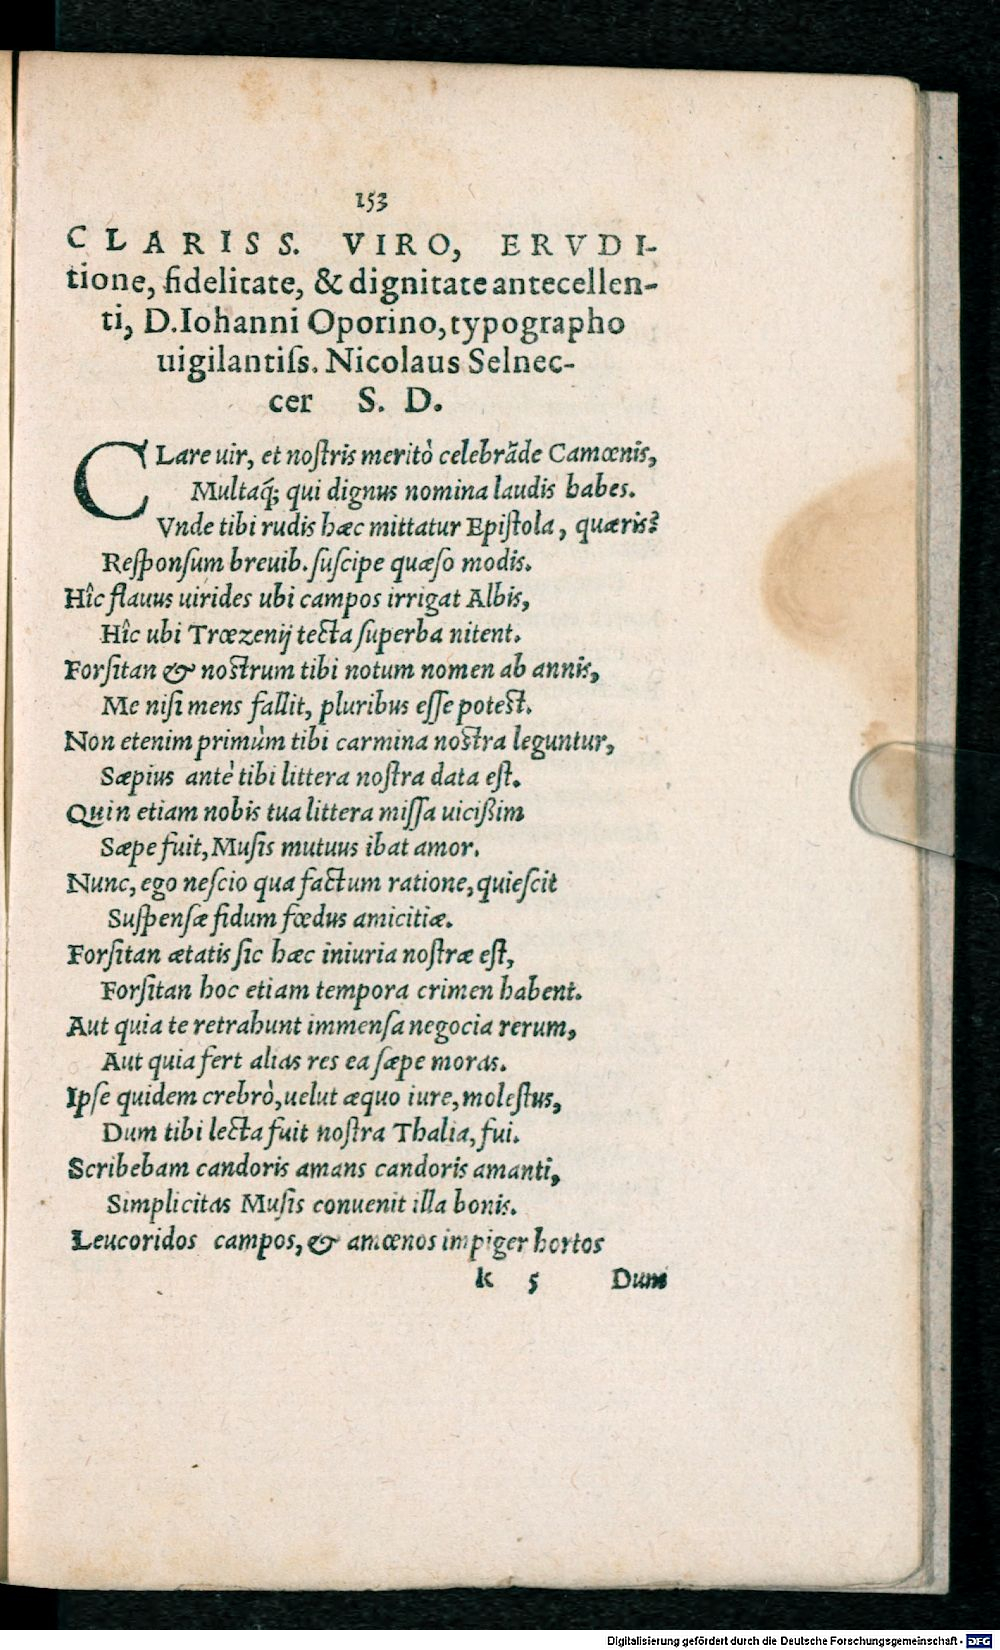 153
CLARISS. VIRO, ERVDI-
tione, fidelitate, & dignitate antecellen-
ti, D. Iohanni Oporino, typographo
uigilantiſs. Nicolaus Selnec-
cer S. D.
CLare uir, et noſtris meritò celebrāde Camœnis,
Multaq́; qui dignus nomina laudis habes.
Vnde tibi rudis hæc mittatur Epiſtola, quæris?
Reſponſum breuib. ſuſcipe quæſo modis.
Hîc flauus uirides ubi campos irrigat Albis,
Hîc ubi Trœzenij tecta ſuperba nitent.
Forſitan & noſtrum tibi notum nomen ab annis,
Me niſi mens fallit, pluribus eſſe poteſt.
Non etenim primùm tibi carmina noſtra leguntur,
Sæpius antè tibi littera noſtra data eſt.
Quin etiam nobis tua littera miſſa uicißim
Sæpe fuit, Muſis mutuus ibat amor.
Nunc, ego neſcio qua factum ratione, quieſcit
Suſpenſæ fidum fœdus amicitiæ.
Forſitan ætatis ſic hæc iniuria noſtræ eſt,
Forſitan hoc etiam tempora crimen habent.
Aut quia te retrahunt immenſa negocia rerum,
Aut quia fert alias res ea ſæpe moras.
Ipſe quidem crebrò, uelut æquo iure, moleſtus,
Dum tibi lecta fuit noſtra Thalia, fui.
Scribebam candoris amans candoris amanti,
Simplicitas Muſis conuenit illa bonis.
Leucoridos campos, & amœnos impiger hortos
k 5 Dum
Digitalisierung gefördert durch die Deutsche Forschungsgemeinschaft - DFG